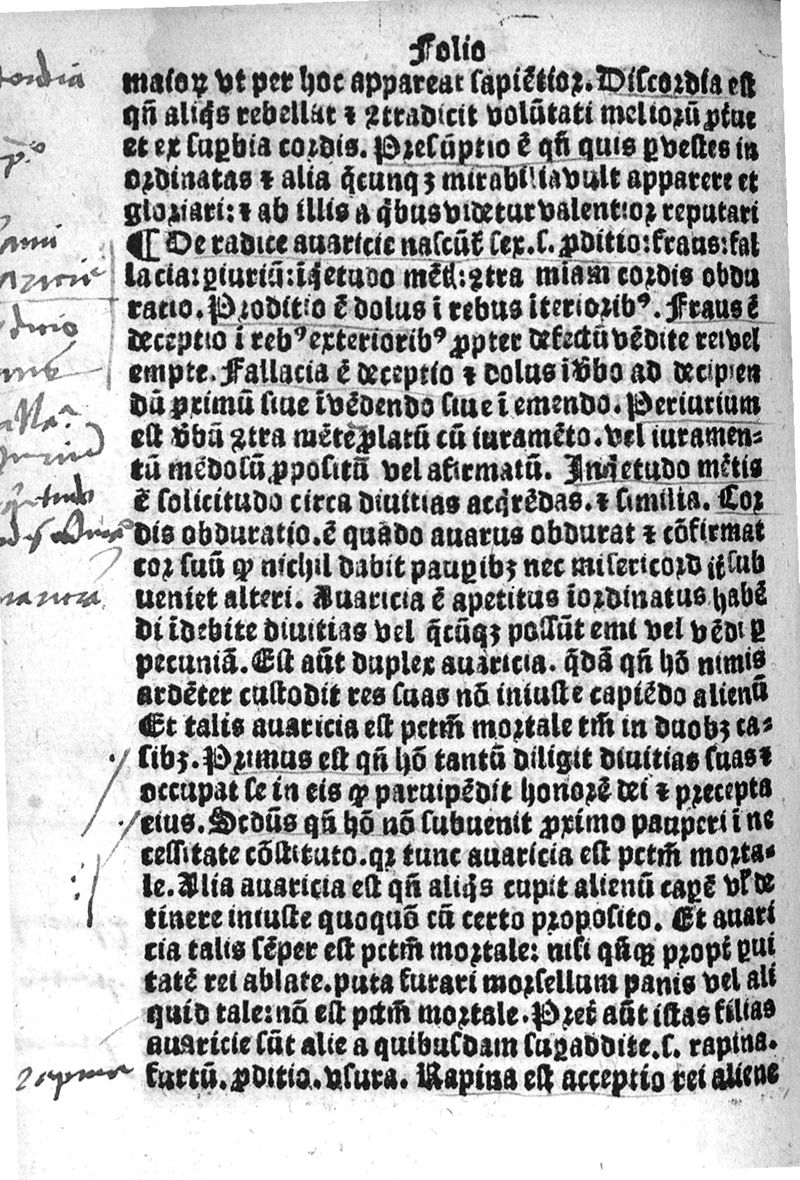 Folio
maioꝝ vt per hoc appareat sapiẽtior. Discordia est
qñ aliq̃s rebellat ⁊ ꝯtradicit volũtati meliorũ
et ex suꝑbia cordis. Presũptio ẽ qñ quis ꝑ vestes in
ordinatas ⁊ alia q̃cunqꝫ mirabilia vult apparere et
gloriari: ⁊ ab illis a q̃bus videtur valentior reputari
¶ De radice auaricie nascũt̃ sex. s. ꝓditio: fraus: fal
lacia: ꝑiuriũ: iq̃etudo mẽt̃: ꝯtra miam cordis obdu
ratio. Proditio ẽ dolus ĩ rebus ĩterioribꝰ. Fraus ẽ
deceptio ĩ rebꝰ exterioribꝰ ꝓpter defectũ vẽdite rei vel
empte. Fallacia ẽ deceptio ⁊ dolus ĩ v̑bo ad decipien
dũ ꝓximũ siue ĩ vẽdendo siue ĩ emendo. Periurium
est v̑bũ ꝯtra mẽtẽ ꝓlatũ cũ iuramẽto. vel iuramen-
tũ mẽdosũ ꝓpositũ vel afirmatũ. Inq̃etudo mẽtis
ẽ solicitudo circa diuitias acq̃rẽdas. ⁊ similia. Cor
dis obduratio. ẽ quãdo auarus obdurat ⁊ cõfirmat
cor suũ ꝙ nichil dabit pauꝑibꝫ nec misericord sub
ueniet alteri. Auaricia ẽ apetitus ĩordinatus habẽ
di ĩdebite diuitias vel q̃cũqꝫ possũt emi vel vẽdi ꝑ
pecuniã. Est aũt duplex auaricia. q̃dã qñ hõ nimis
ardẽter custodit res suas nõ iniuste capiẽdo alienũ
Et talis auaricia est pctm̃ mortale tm̃ in duobꝫ ca-
sibꝫ. Primus est qñ hõ tantũ diligit diuitias suas ⁊
occupat se in eis ꝙ paruipẽdit honorẽ dei ⁊ precepta
eius. Scdũs qñ hõ nõ subuenit ꝓximo pauperi ĩ ne
cessitate cõstituto. qꝛ tunc auaricia est pctm̃ morta-
le. Alia auaricia est qñ aliq̃s cupit alienũ capẽ vl̃ de
tinere iniuste quoquõ cũ certo proposito. Et auari
cia talis sẽper est pctm̃ mortale: nisi qñqꝫ propt̃ ꝑui
tatẽ rei ablate. puta furari morsellum panis vel ali
quid tale: nõ est pctm̃ mortale. Pret̃ aũt istas filias
auaricie sũt alie a quibusdam suꝑaddite. s. rapina.
furtũ. ꝓditio. vsura. Rapina est acceptio rei aliene